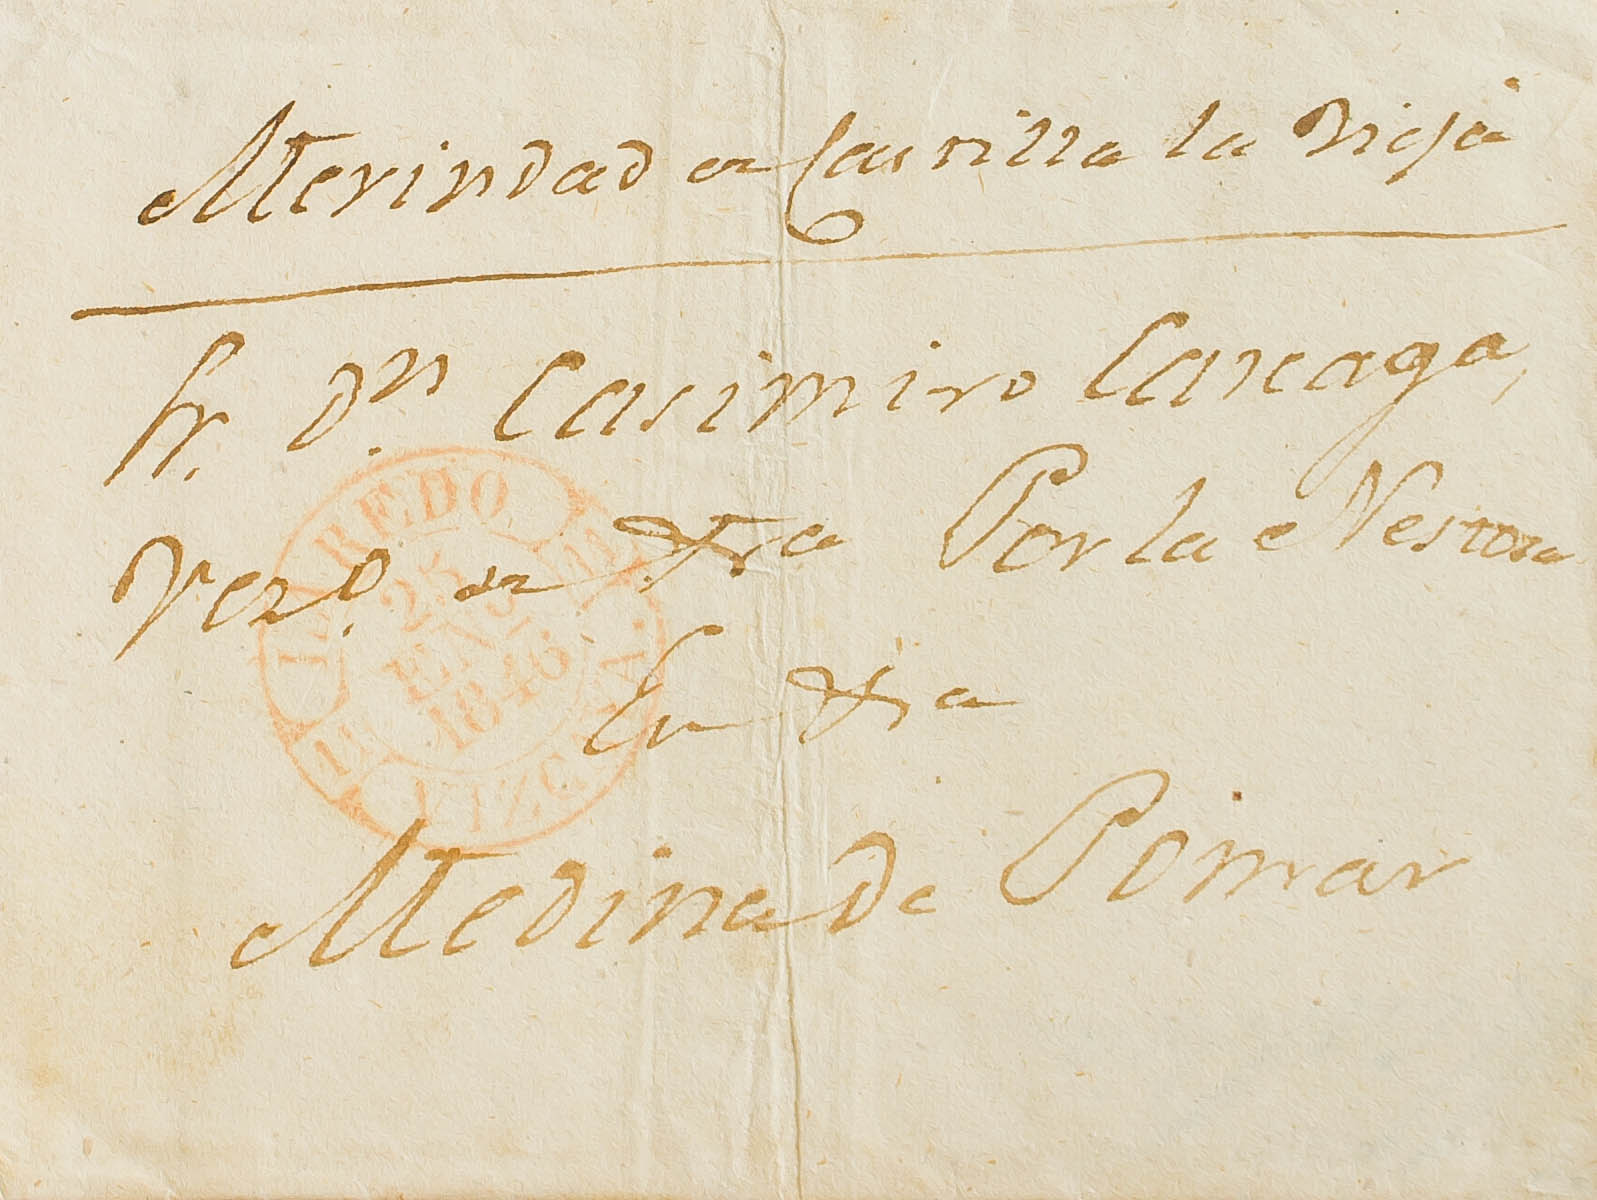 Merindad de Castilla la Vieja
Sr. Dn. Casimiro Careaga,
Vezº. de
Por la Nestosa
En
Medina de Pomar
LAREDO
25
ENO
1846
VIZCAYA.